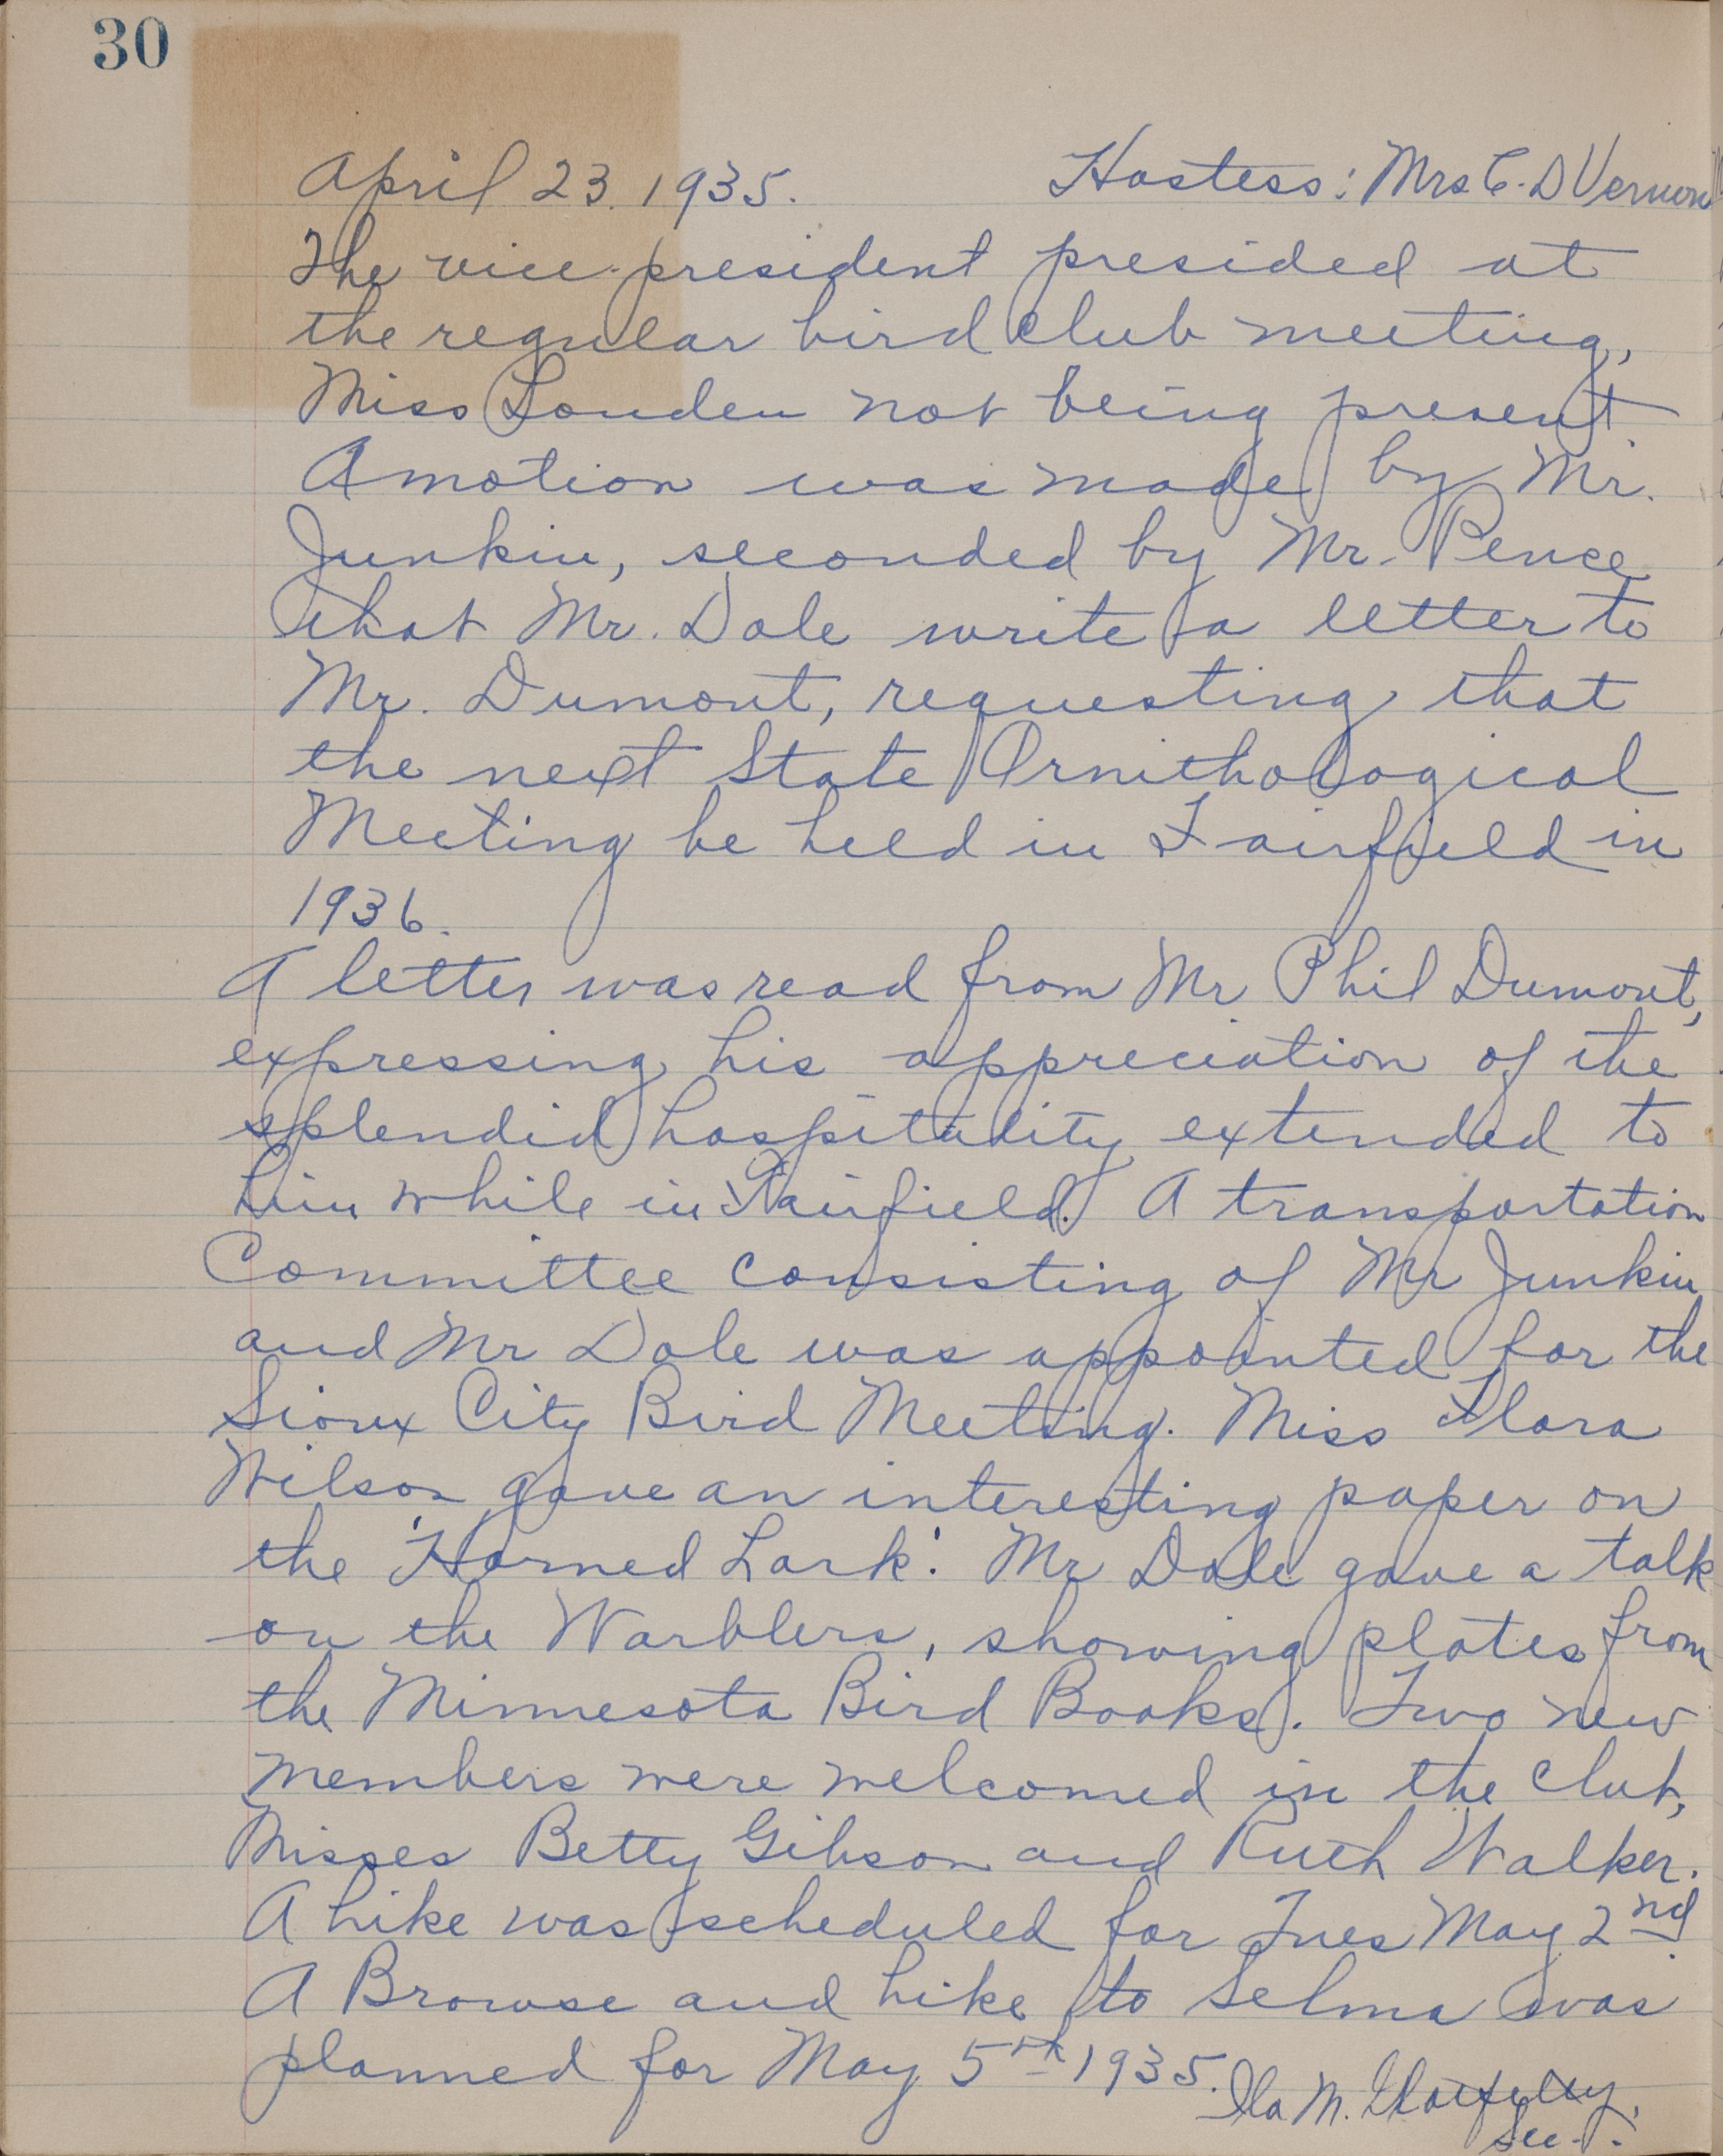 30
April 23. 1935. Hostess: Mrs C. D Vernon
The vice-president presided at
the regular bird club meeting,
Miss Louden not being present.
A motion was made by Mr.
Junkin, seconded by Mr. Pence
that Mr. Dole write a letter to
Mr. Dumont, requesting that
the next State Ornithological
Meeting be held in Fairfield in
1936.
A letter was read from Mr Phil Dumont,
expressing his appreciation of the
splendid hospitality extended to
him while in Fairfield. A transportation
Committee consisting of Mr Junkin
and Mr Dole was appointed for the
Sioux City Bird Meeting. Miss Flora
Wilson gave an interesting paper on
the 'Horned Lark'. Mr Dole gave a talk
on the Warblers, showing plates from
the Minnesota Bird Books. Two new
members were welcomed in the club,
Misses Betty Gibson and Ruth Walker.
A hike was scheduled for Tues May 2nd.
A Browse and hike to Selma was
planned for May 5th 1935.
Ila M.
Sec.